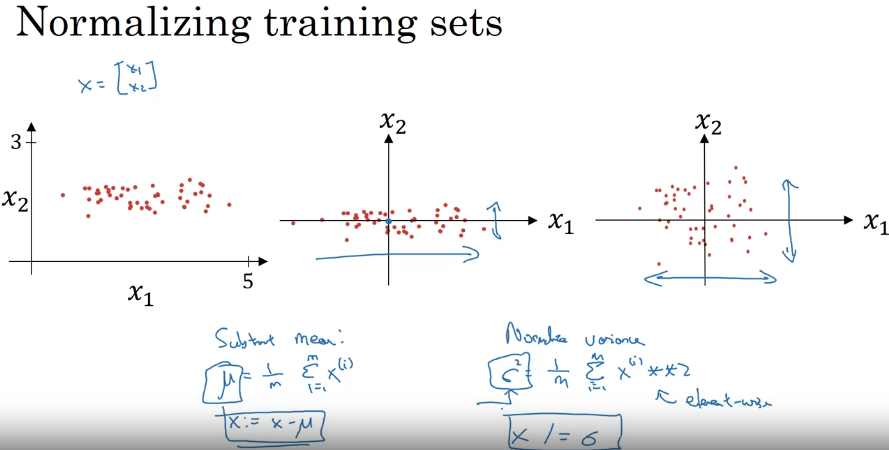 Normalizing training sets
x = [x₁
x₂]
3
x₂
5
x₁
x₂
x₁
x₂
x₁
Subtract mean:
μ = 1/m Σᵢ₌₁ᵐ x⁽ⁱ⁾
x := x - μ
Normalize variance
σ² = 1/m Σᵢ₌₁ᵐ x⁽ⁱ⁾ ** 2
element-wise
x /= σ